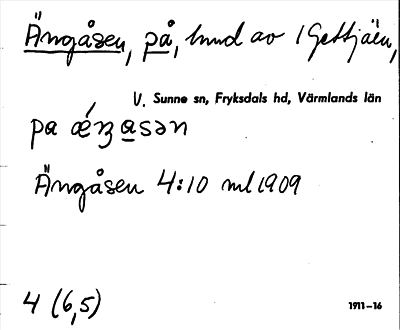 Ängåsen, på, hmd av 1 Gettjärn,
V. Sunne sn, Fryksdals hd, Värmlands län
pa ǽŋ asən
Ängåsen 4:10 ml 1909
4 (6,5)
1911–16